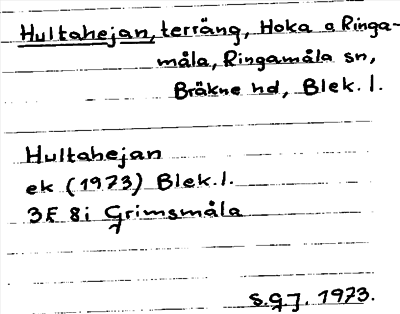 Hultahejan, terräng, Hoka o Ringa-
måla, Ringamåla sn,
Bräkne hd, Blek. l.
Hultahejan
ek (1973) Blek. l.
3E 8i Grimsmåla
S.G.J. 1973.